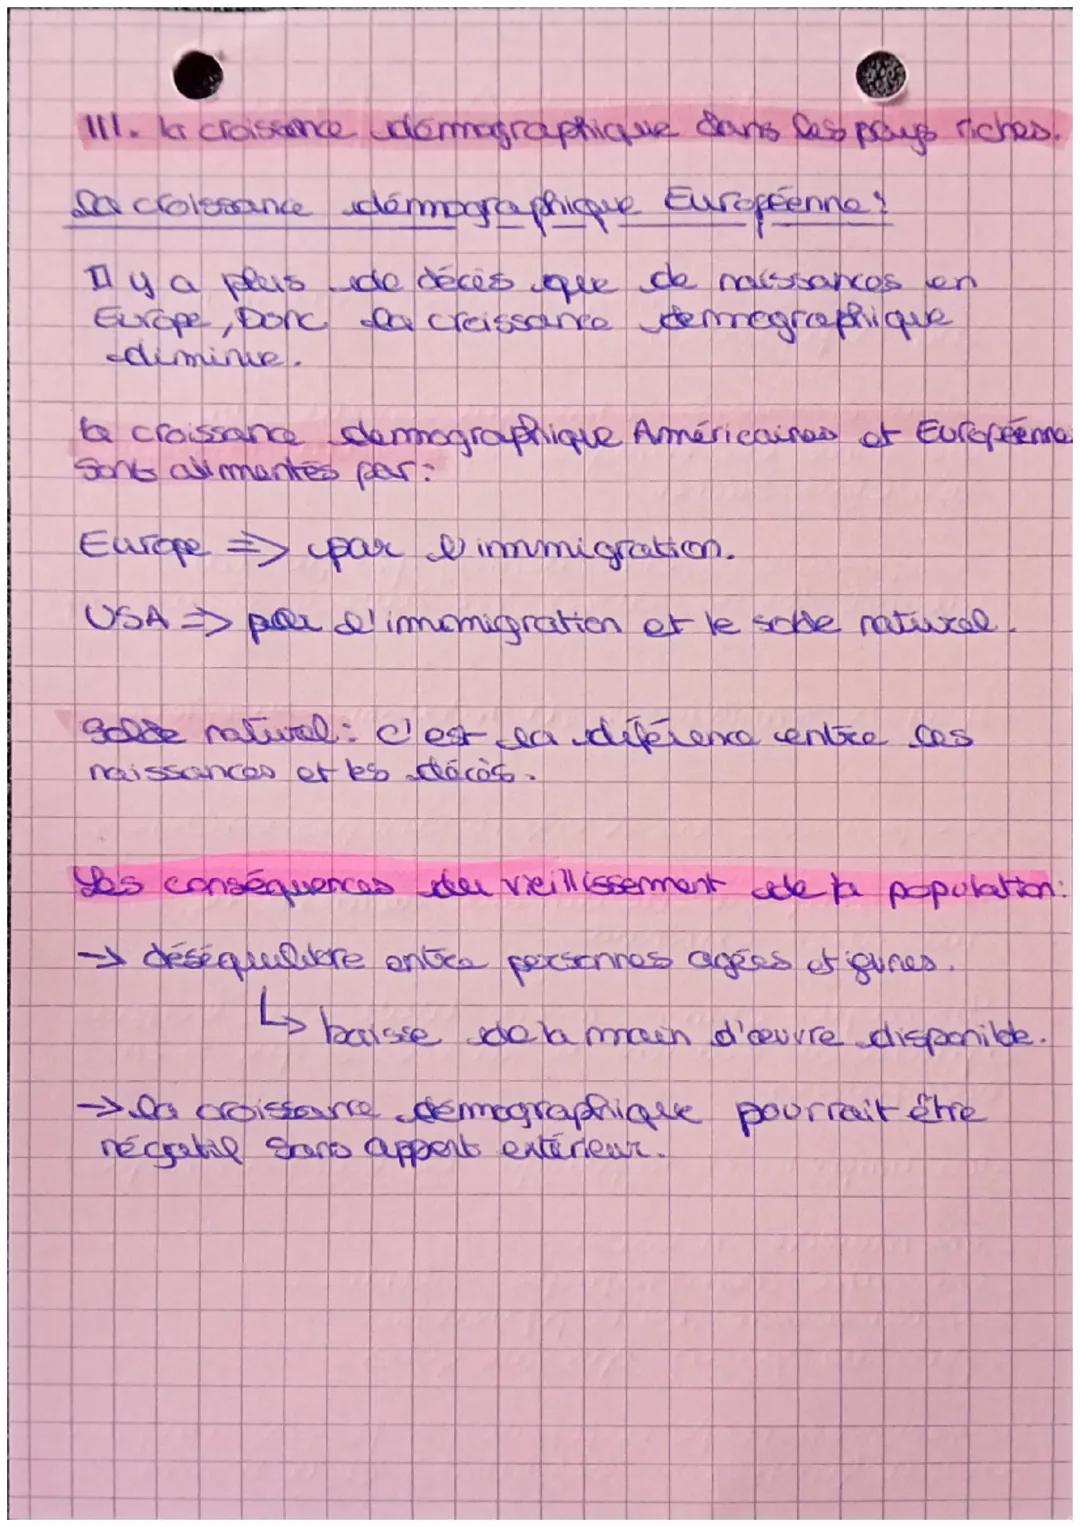 III. la croissance démographique dans les pays riches.
La croissance démographique Européenne :
Il y a plus de décès que de naissances en
Europe, Donc la croissance démographique
diminue.
la croissance démographique Américaines et Européenne
sont alimentés par :
Europe => par l'immigration.
USA => par l'immigration et le solde naturel.
Solde naturel : c'est la diférence entre les
naissances et les décès.
Les conséquences du vieillissement de la population :
→ déséquilibre entre personnes agées et
↳ baisse de la main d'œuvre disponible.
→ la croissance démographique pourrait être
négatif sans apport extérieur.